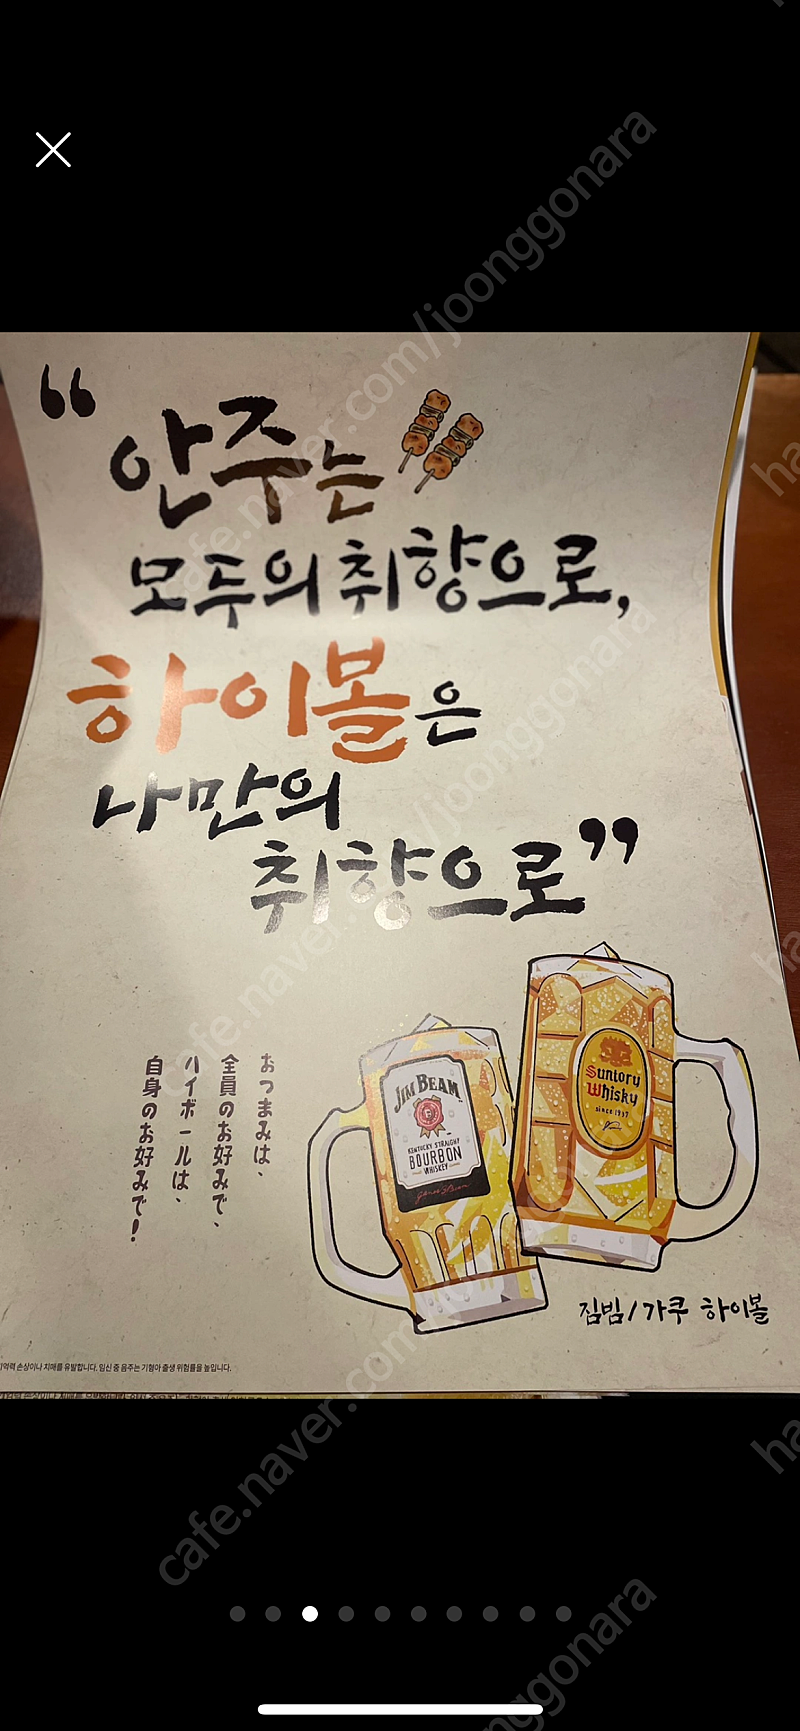 “안주는
모두의 취향으로,
하이볼은
나만의
취향으로”
おつまみは、
全員のお好みで、
ハイボールは、
自身のお好みで!
JIM BEAM
KENTUCKY STRAIGHT
BOURBON
WHISKEY
James B. Beam
Suntory
Whisky
since 1937
짐빔/가쿠 하이볼
기억력 손상이나 치매를 유발합니다. 임신 중 음주는 기형아 출생 위험률을 높입니다.
cafe.naver.com/joonggonara
cafe.naver.com/joonggonara
cafe.naver.com/joonggonara